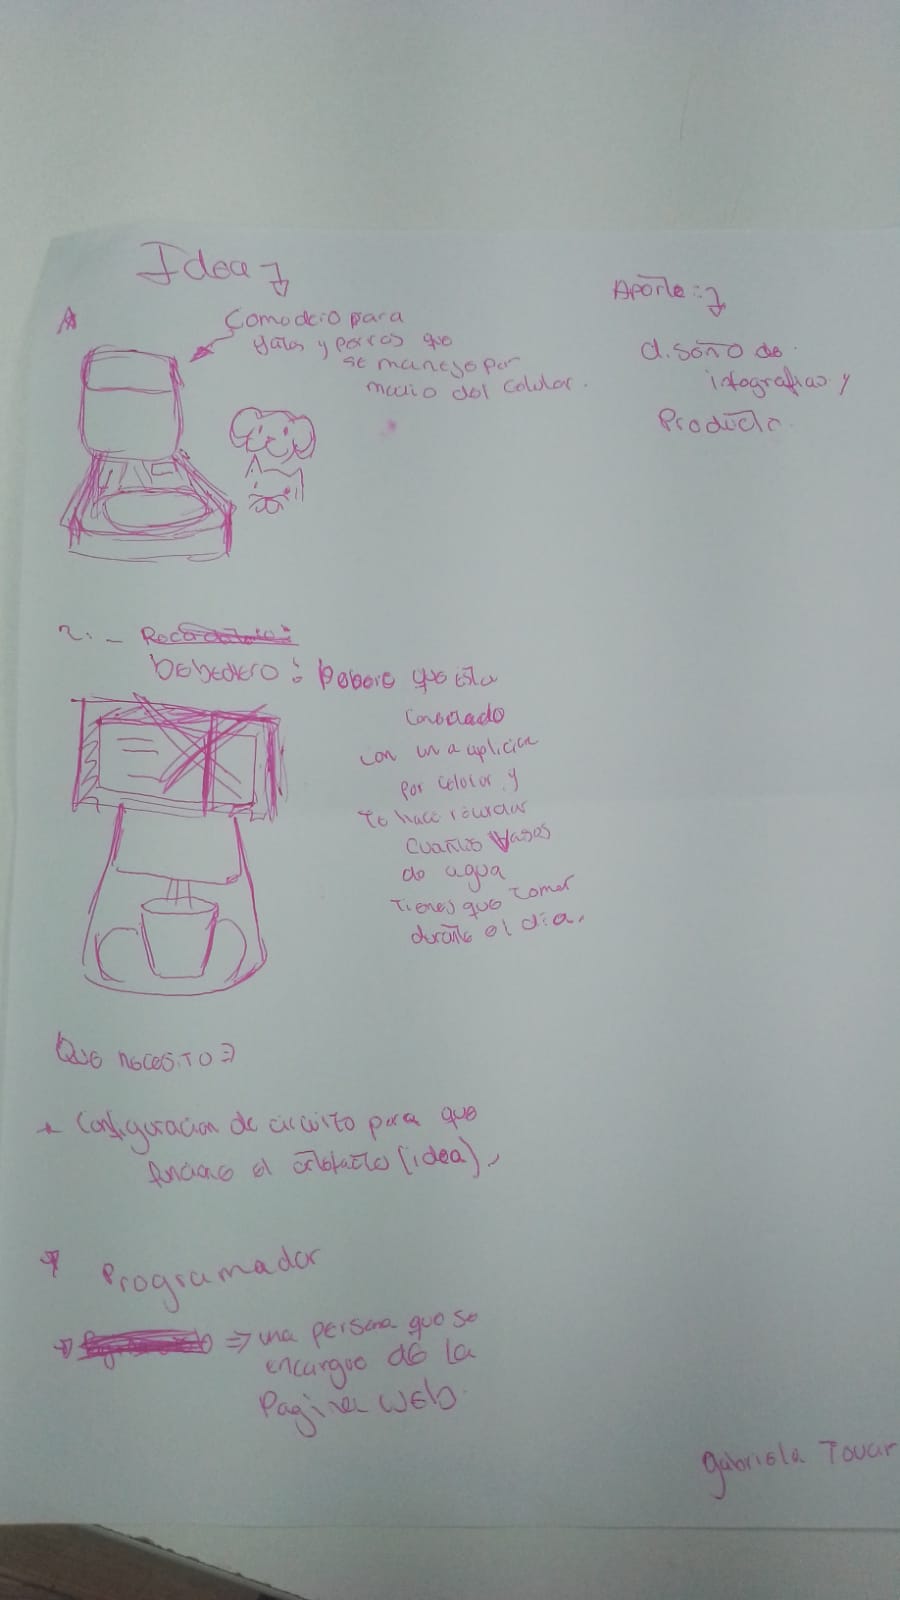 Idea
Comedero para
gatos y perros que
se maneje por
medio del celular.
Aporte:
diseño de
infografias y
Producto
2. -
bebedero: Bebero que esta
Conectado
con una aplicicion
por celular y
te hace recordar
Cuantos Vasos
de agua
Tienes que tomar
durante el dia.
Que necesito
Configuracion de circuito para que
funcione el artefacto (idea),
Programador
una persona que se
encargue de la
Pagina web.
Gabriela Tovar